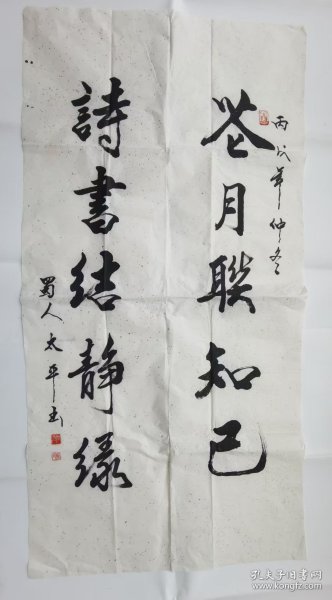 丙戌年仲冬
花月聯知己
詩書結静緣
蜀人太平书
孔夫子旧书网